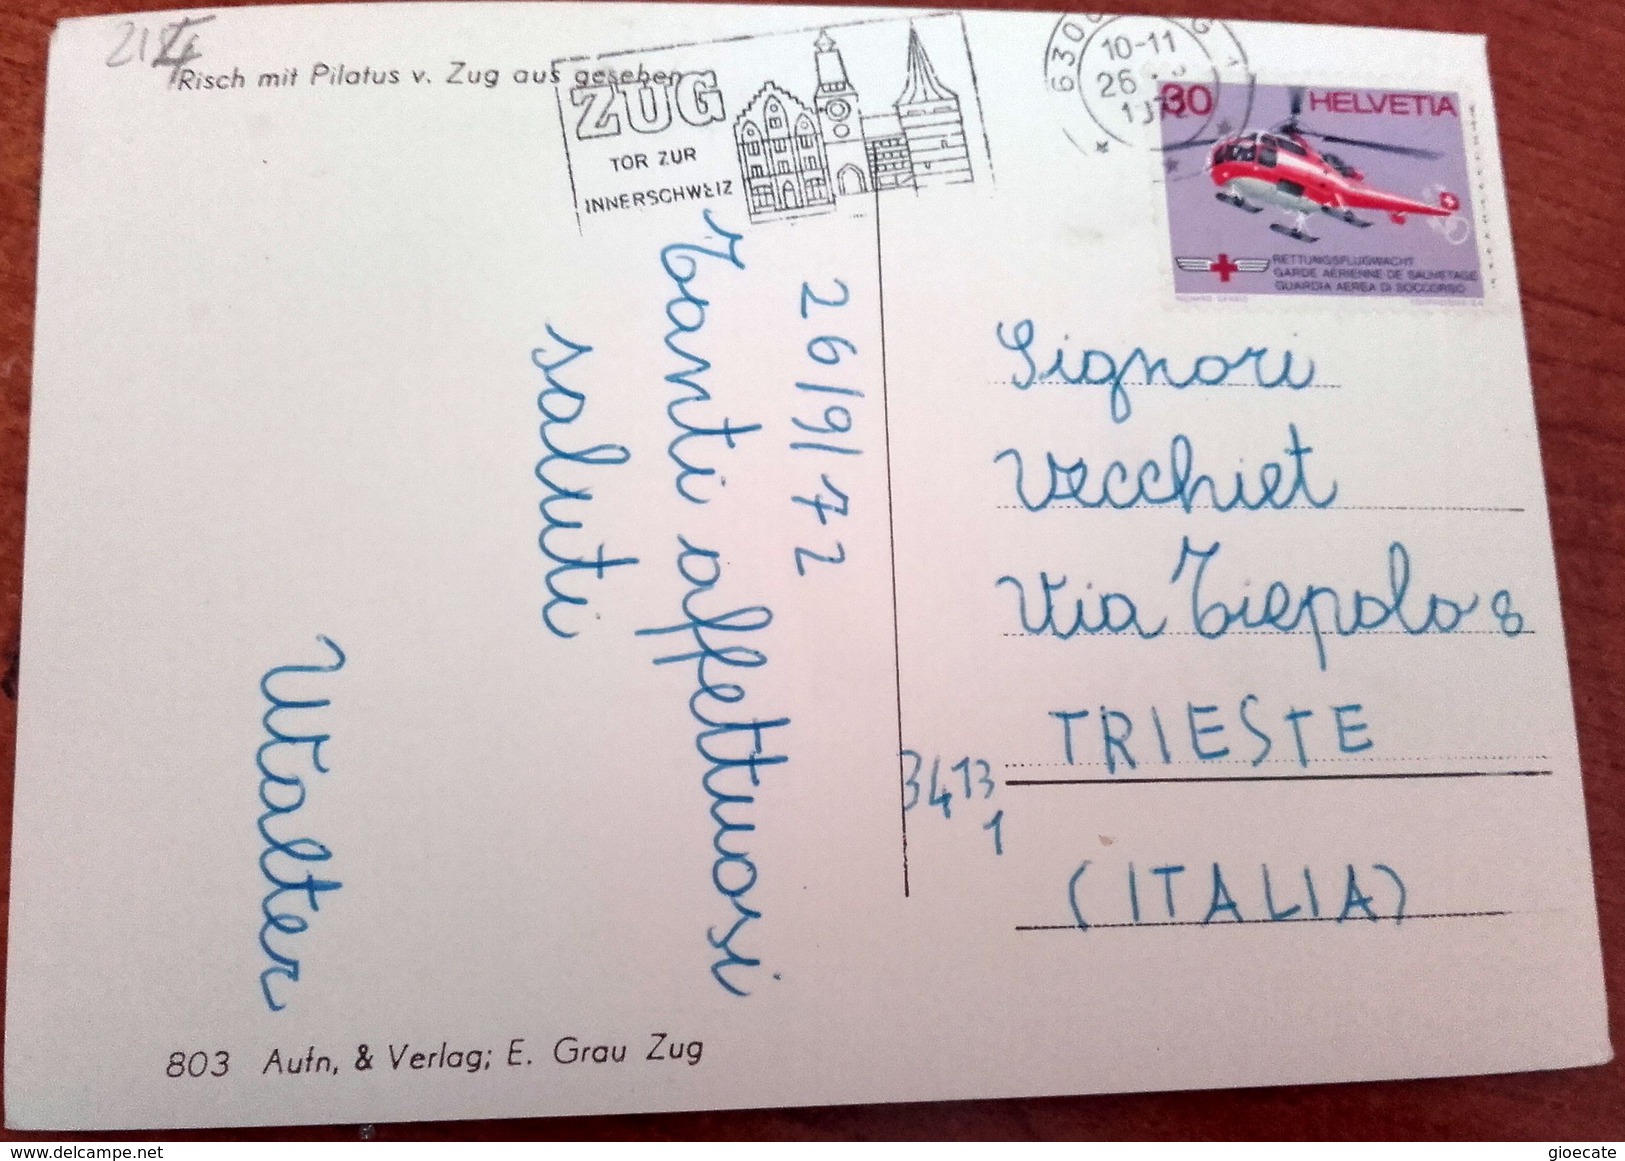 Risch mit Pilatus v. Zug aus gesehen
ZUG
TOR ZUR
INNERSCHWEIZ
10-11
26
30 HELVETIA
RETTUNGSFLUGWACHT
GARDE AÉRIENNE DE SAUVETAGE
GUARDIA AEREA DI SOCCORSO
26/9/72
Tanti affettuosi
saluti
Walter
Signori
Vecchiet
Via Tiepolo 8
TRIESTE
3413
1
(ITALIA)
803 Aufn, & Verlag; E. Grau Zug
delcampe.net
gioecate